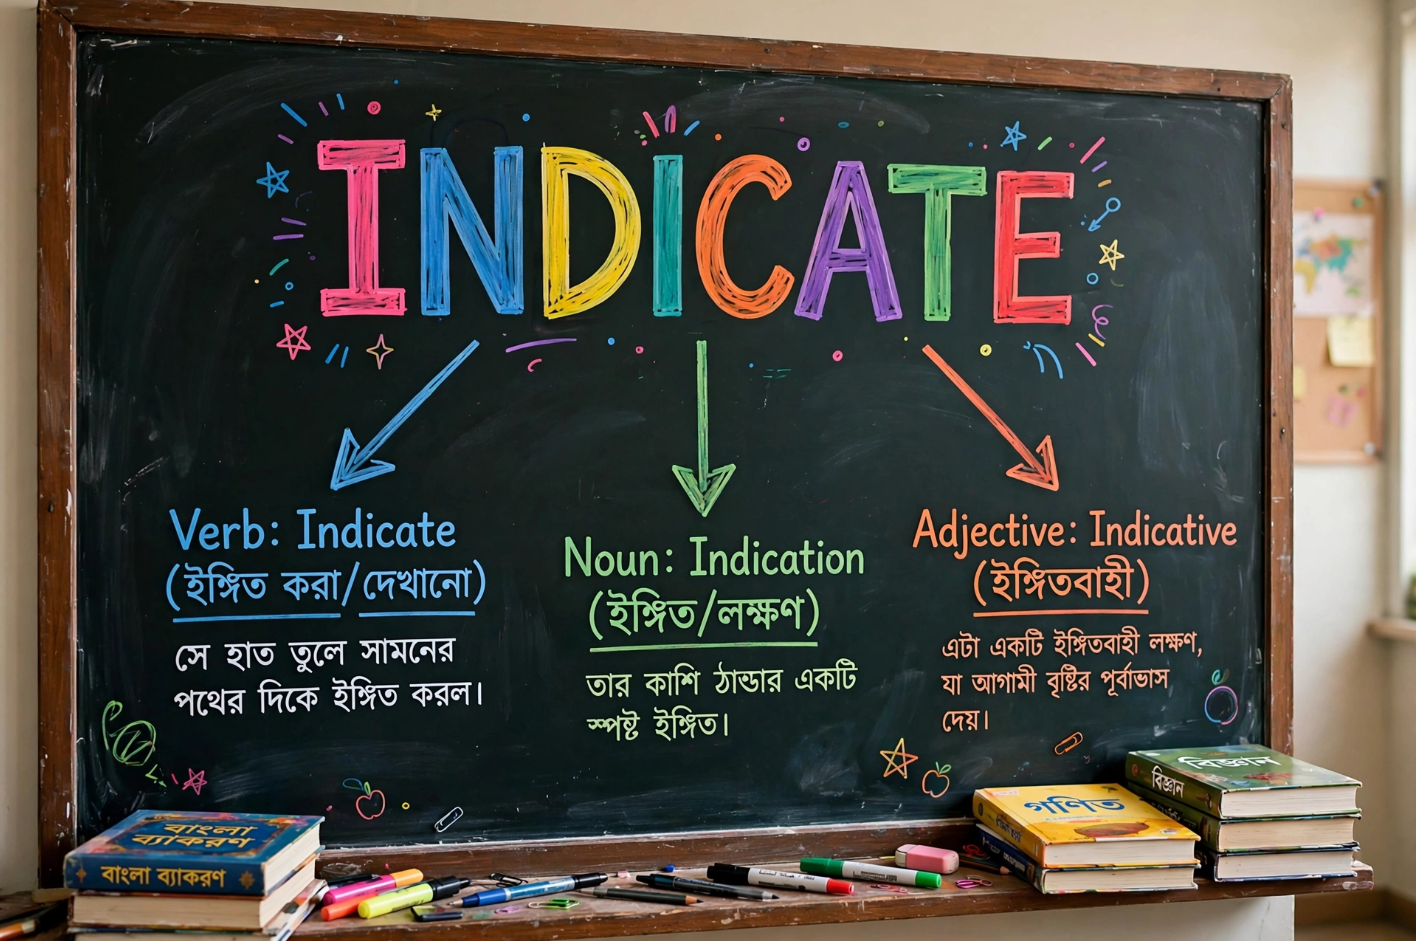 INDICATE
Verb: Indicate
(ইঙ্গিত করা/দেখানো)
সে হাত তুলে সামনের
পথের দিকে ইঙ্গিত করল।
Noun: Indication
(ইঙ্গিত/লক্ষণ)
তার কাশি ঠান্ডার একটি
স্পষ্ট ইঙ্গিত।
Adjective: Indicative
(ইঙ্গিতবাহী)
এটা একটি ইঙ্গিতবাহী লক্ষণ,
যা আগামী বৃষ্টির পূর্বাভাস
দেয়।
বাংলা
ব্যাকরণ
বাংলা ব্যাকরণ
গণিত
বিজ্ঞান
বিজ্ঞান